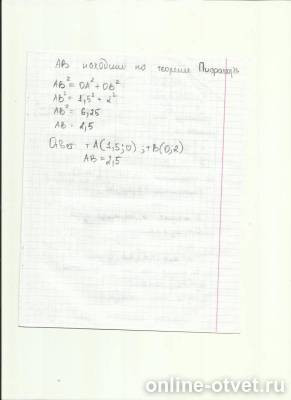 AB находим по теореме Пифагора
AB² = OA² + OB²
AB² = 1,5² + 2²
AB² = 6,25
AB = 2,5
Ответ т A(1,5;0) ; т B(0;2)
AB = 2,5
online-otvet.ru